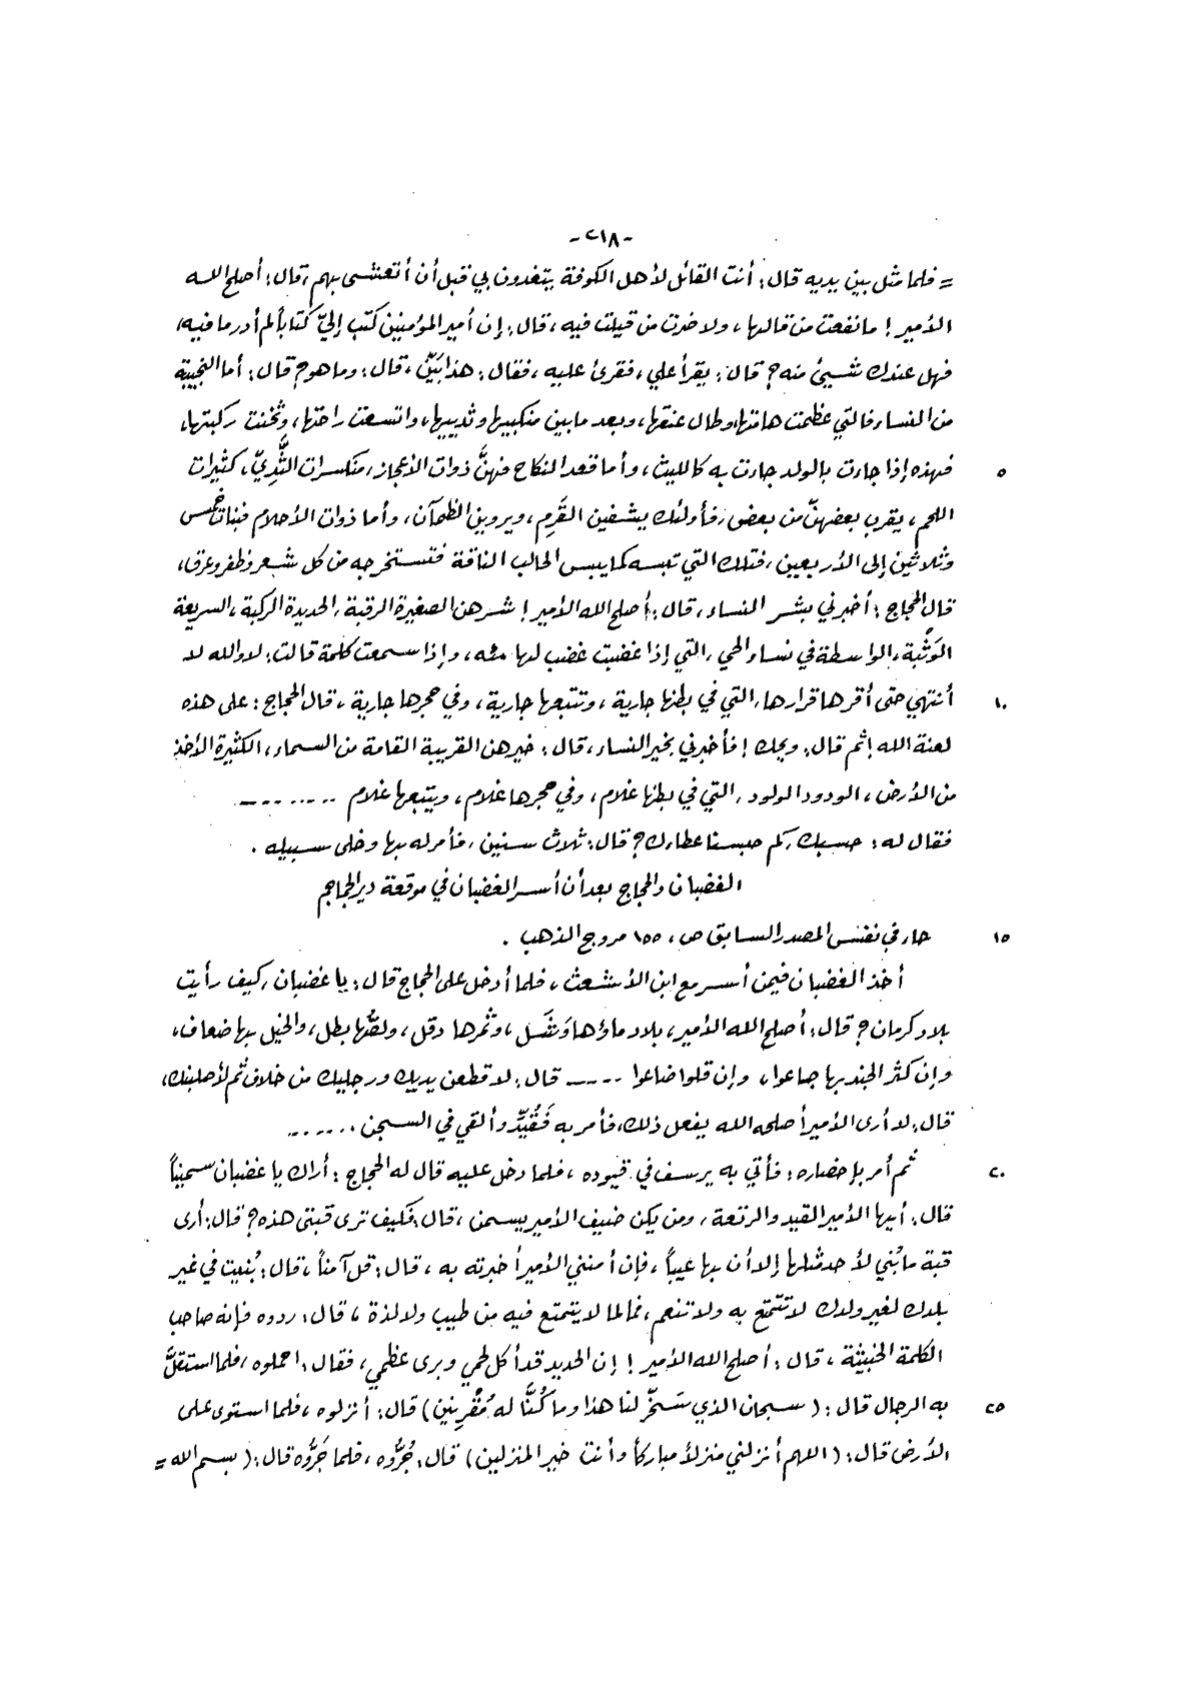 -٢١٨-
= فلما مثل بين يديه قال: أنت القائل لأهل الكوفة يتغدون بي قبل أن أتعشى بهم، قال: أصلح الله
الأمير! ما نفعت من قالها، ولا ضرت من قيلت فيه، قال: إن أمير المؤمنين كتب إليّ كتاباً لم أدر ما فيه،
فهل عندك شيئ منه؟ قال: يقرأ علي، فقرئ عليه، فقال: هذا بَيِّنٌ، قال: وما هو؟ قال: أما النجيبة
من النساء فالتي عظمت هامتها، وطال عنقها، وبعد ما بين منكبيها وثدييها، واتسعت راحتها، وثخنت ركبتها،
٥ فهذه إذا جاءت بالولد جاءت به كالليث، وأما قعد النكاح فهنَّ ذوات الأعجاز، منكسرات الثُّدِيّ، كثيرات
اللحم، يقرب بعضهنّ من بعض، فأولئك يشفين القَرِم، ويروين الظمآن، وأما ذوات الأحلام فبنات خمس
وثلاثين إلى الأربعين، فتلك التي تبسه كما يبس الحالب الناقة فتستخرجه من كل شعر وظفر وعرق،
قال الحجاج: أخبرني بشر النساء، قال: أصلح الله الأمير! شرهن الصغيرة الرقبة، الحديدة الركبة، السريعة
الوَثْبة، الواسطة في نساء الحي، التي إذا غضبت غضب لها مئه، وإذا سمعت كلمة قالت: لا والله لا
١٠ أنتهي حتى أقرها قرارها، التي في بطنها جارية، وتتبعها جارية، وفي حجرها جارية، قال الحجاج: على هذه
لعنة الله! ثم قال: ويحك! فأخبرني بخير النساء، قال: خيرهن القريبة القامة من السماء، الكثيرة الأخذ
من الأرض، الودود الولود، التي في بطنها غلام، وفي حجرها غلام، ويتبعها غلام ........
فقال له: حسبك، كم حبسنا عطاءك؟ قال: ثلاث سنين، فأمر له بها وخلى سبيله.
الغضبان والحجاج بعد أن أسر الغضبان في موقعة دير الجماجم
١٥ جاء في نفس المصدر السابق ص، ١٥٥ مروج الذهب.
أخذ الغضبان فيمن أسر مع ابن الأشعث، فلما أدخل على الحجاج قال: يا غضبان، كيف رأيت
بلاد كرمان؟ قال: أصلح الله الأمير، بلاد ماؤها وَشَل، وثمرها دقل، ولصُّها بطل، والخيل بها ضعاف،
وإن كثر الجند بها جاعوا، وإن قلوا ضاعوا ..... قال: لأقطعن يديك ورجليك من خلاف ثم لأصلبنك،
قال: لا أرى الأمير أصلحه الله يفعل ذلك، فأمر به فَقُيِّد وألقي في السجن ......
٢٠ ثم أمر بإحضاره: فأتي به يرسف في قيوده، فلما دخل عليه قال له الحجاج: أراك يا غضبان سميناً
قال: أيها الأمير القيد والرتعة، ومن يكن ضيف الأمير يسمن، قال: فكيف ترى قبتي هذه؟ قال: أرى
قبة ما بُني لأحد مثلها إلا أن بها عيباً، فإن أمنني الأمير أخبرته به، قال: قل آمناً، قال: بُنيت في غير
بلدك لغير ولدك لا تتمتع به ولا تنعم، فما لما لا يتمتع فيه من طيب ولا لذة، قال: ردوه فإنه صاحب
الكلمة الخبيثة، قال: أصلح الله الأمير! إن الحديد قد أكل لحمي وبرى عظمي، فقال: احملوه، فلما استقلَّ
٢٥ به الرجال قال: (سبحان الذي سَخّر لنا هذا وما كُنَّا له مُقْرِنِين) قال: أنزلوه، فلما استوى على
الأرض قال: (اللهم أنزلني منزلاً مباركاً وأنت خير المنزلين) قال: جُرُّوه، فلما جَرُّوه قال: (بسم الله =